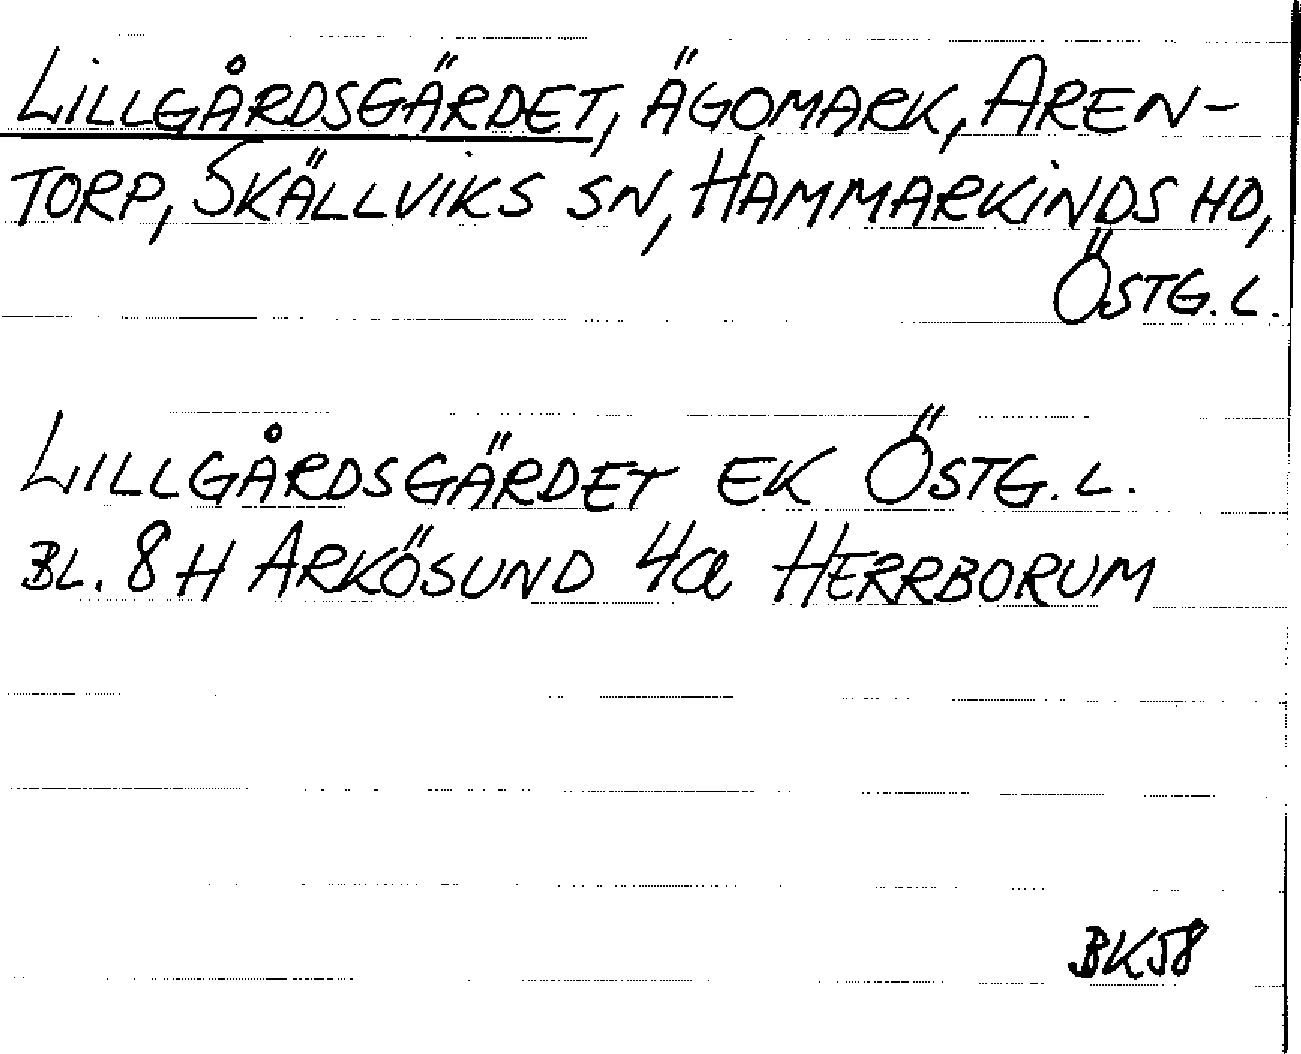 LILLGÅRDSGÄRDET, ÄGOMARK, AREN-
TORP, SKÄLLVIKS SN, HAMMARKINDS HD,
ÖSTG. L.
LILLGÅRDSGÄRDET EK ÖSTG. L.
BL. 8 H ARKÖSUND 4a HERRBORUM
BK58